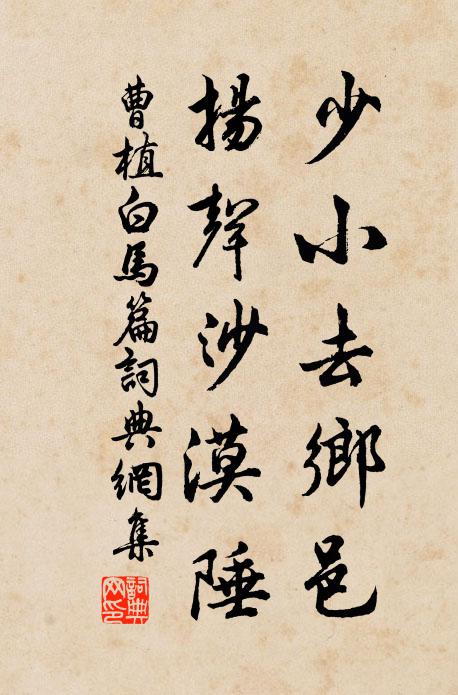 少小去鄉邑
揚聲沙漠陲
曹植白馬篇詞典網集
詞典
网印